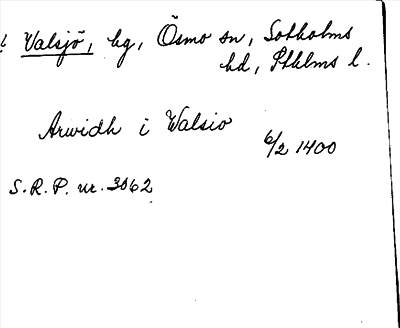 Valsjö, by, Ösmo sn, Sotholms
hd, Sthlms l.
Arwidh i Walsio
6/2 1400
S.R.P. nr. 3062